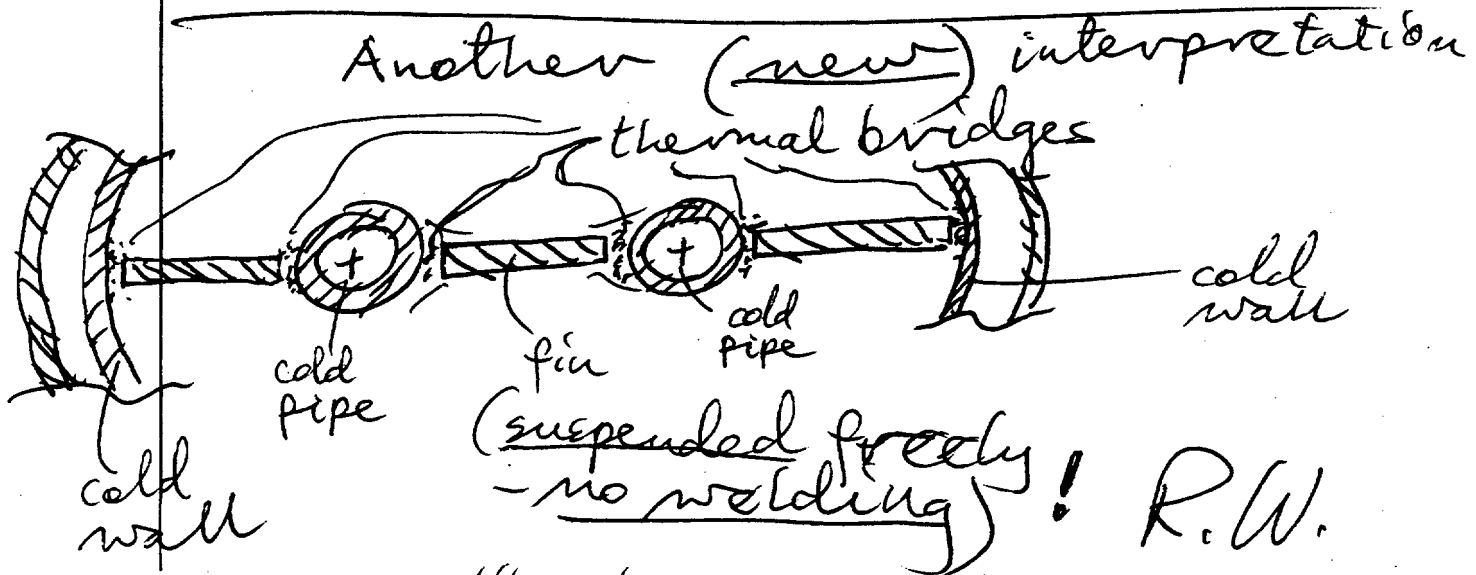 Another (new) interpretation
thermal bridges
cold
wall
cold
pipe
fin
cold
pipe
(suspended freely
- no welding)! R.W.
cold
wall